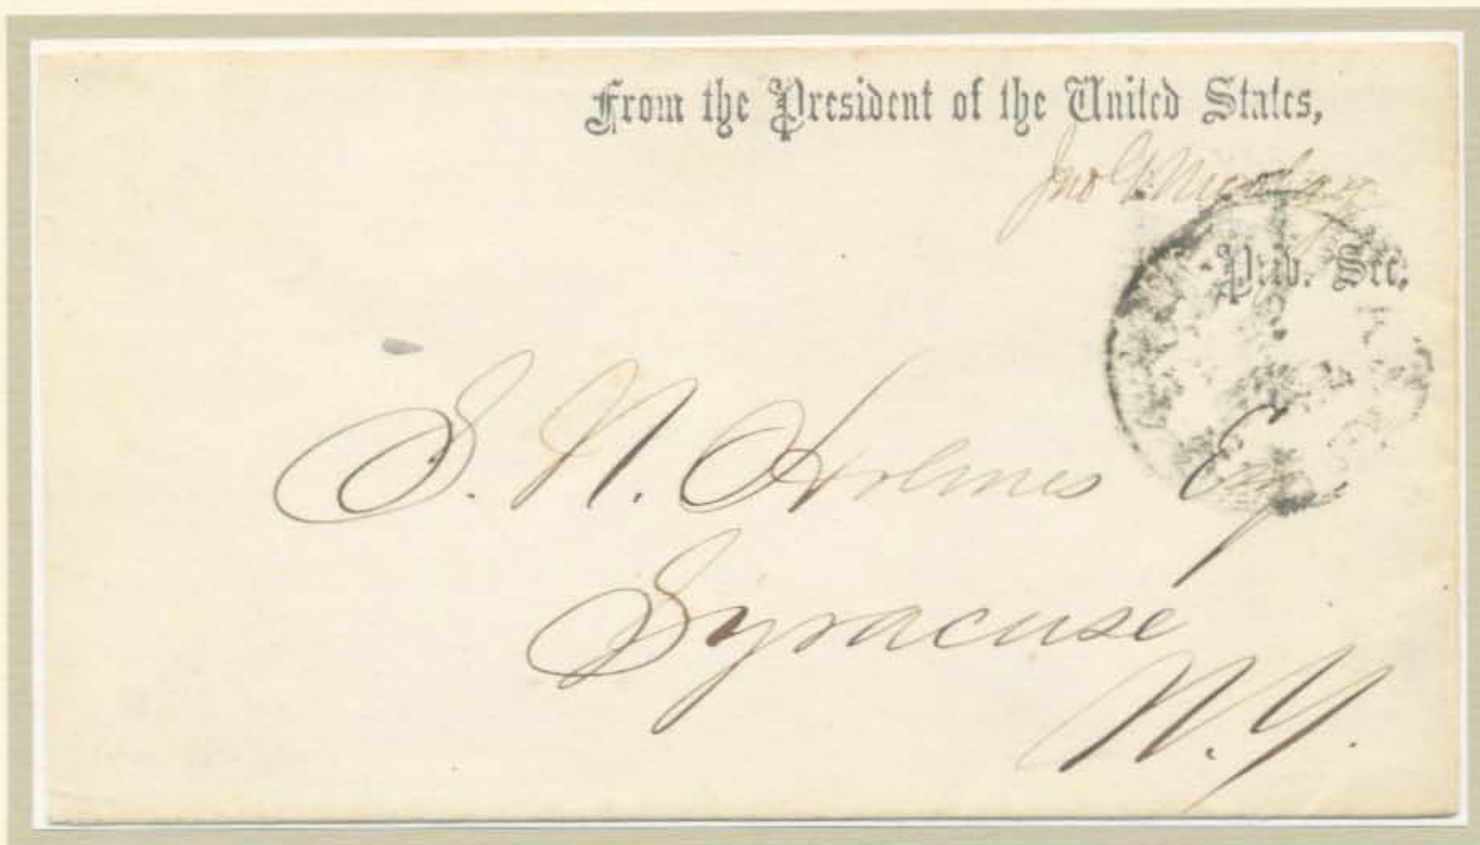 From the President of the United States,
Jno G Nicolay
Priv. Sec.
S. N. Holmes Esq
Syracuse
N. Y.